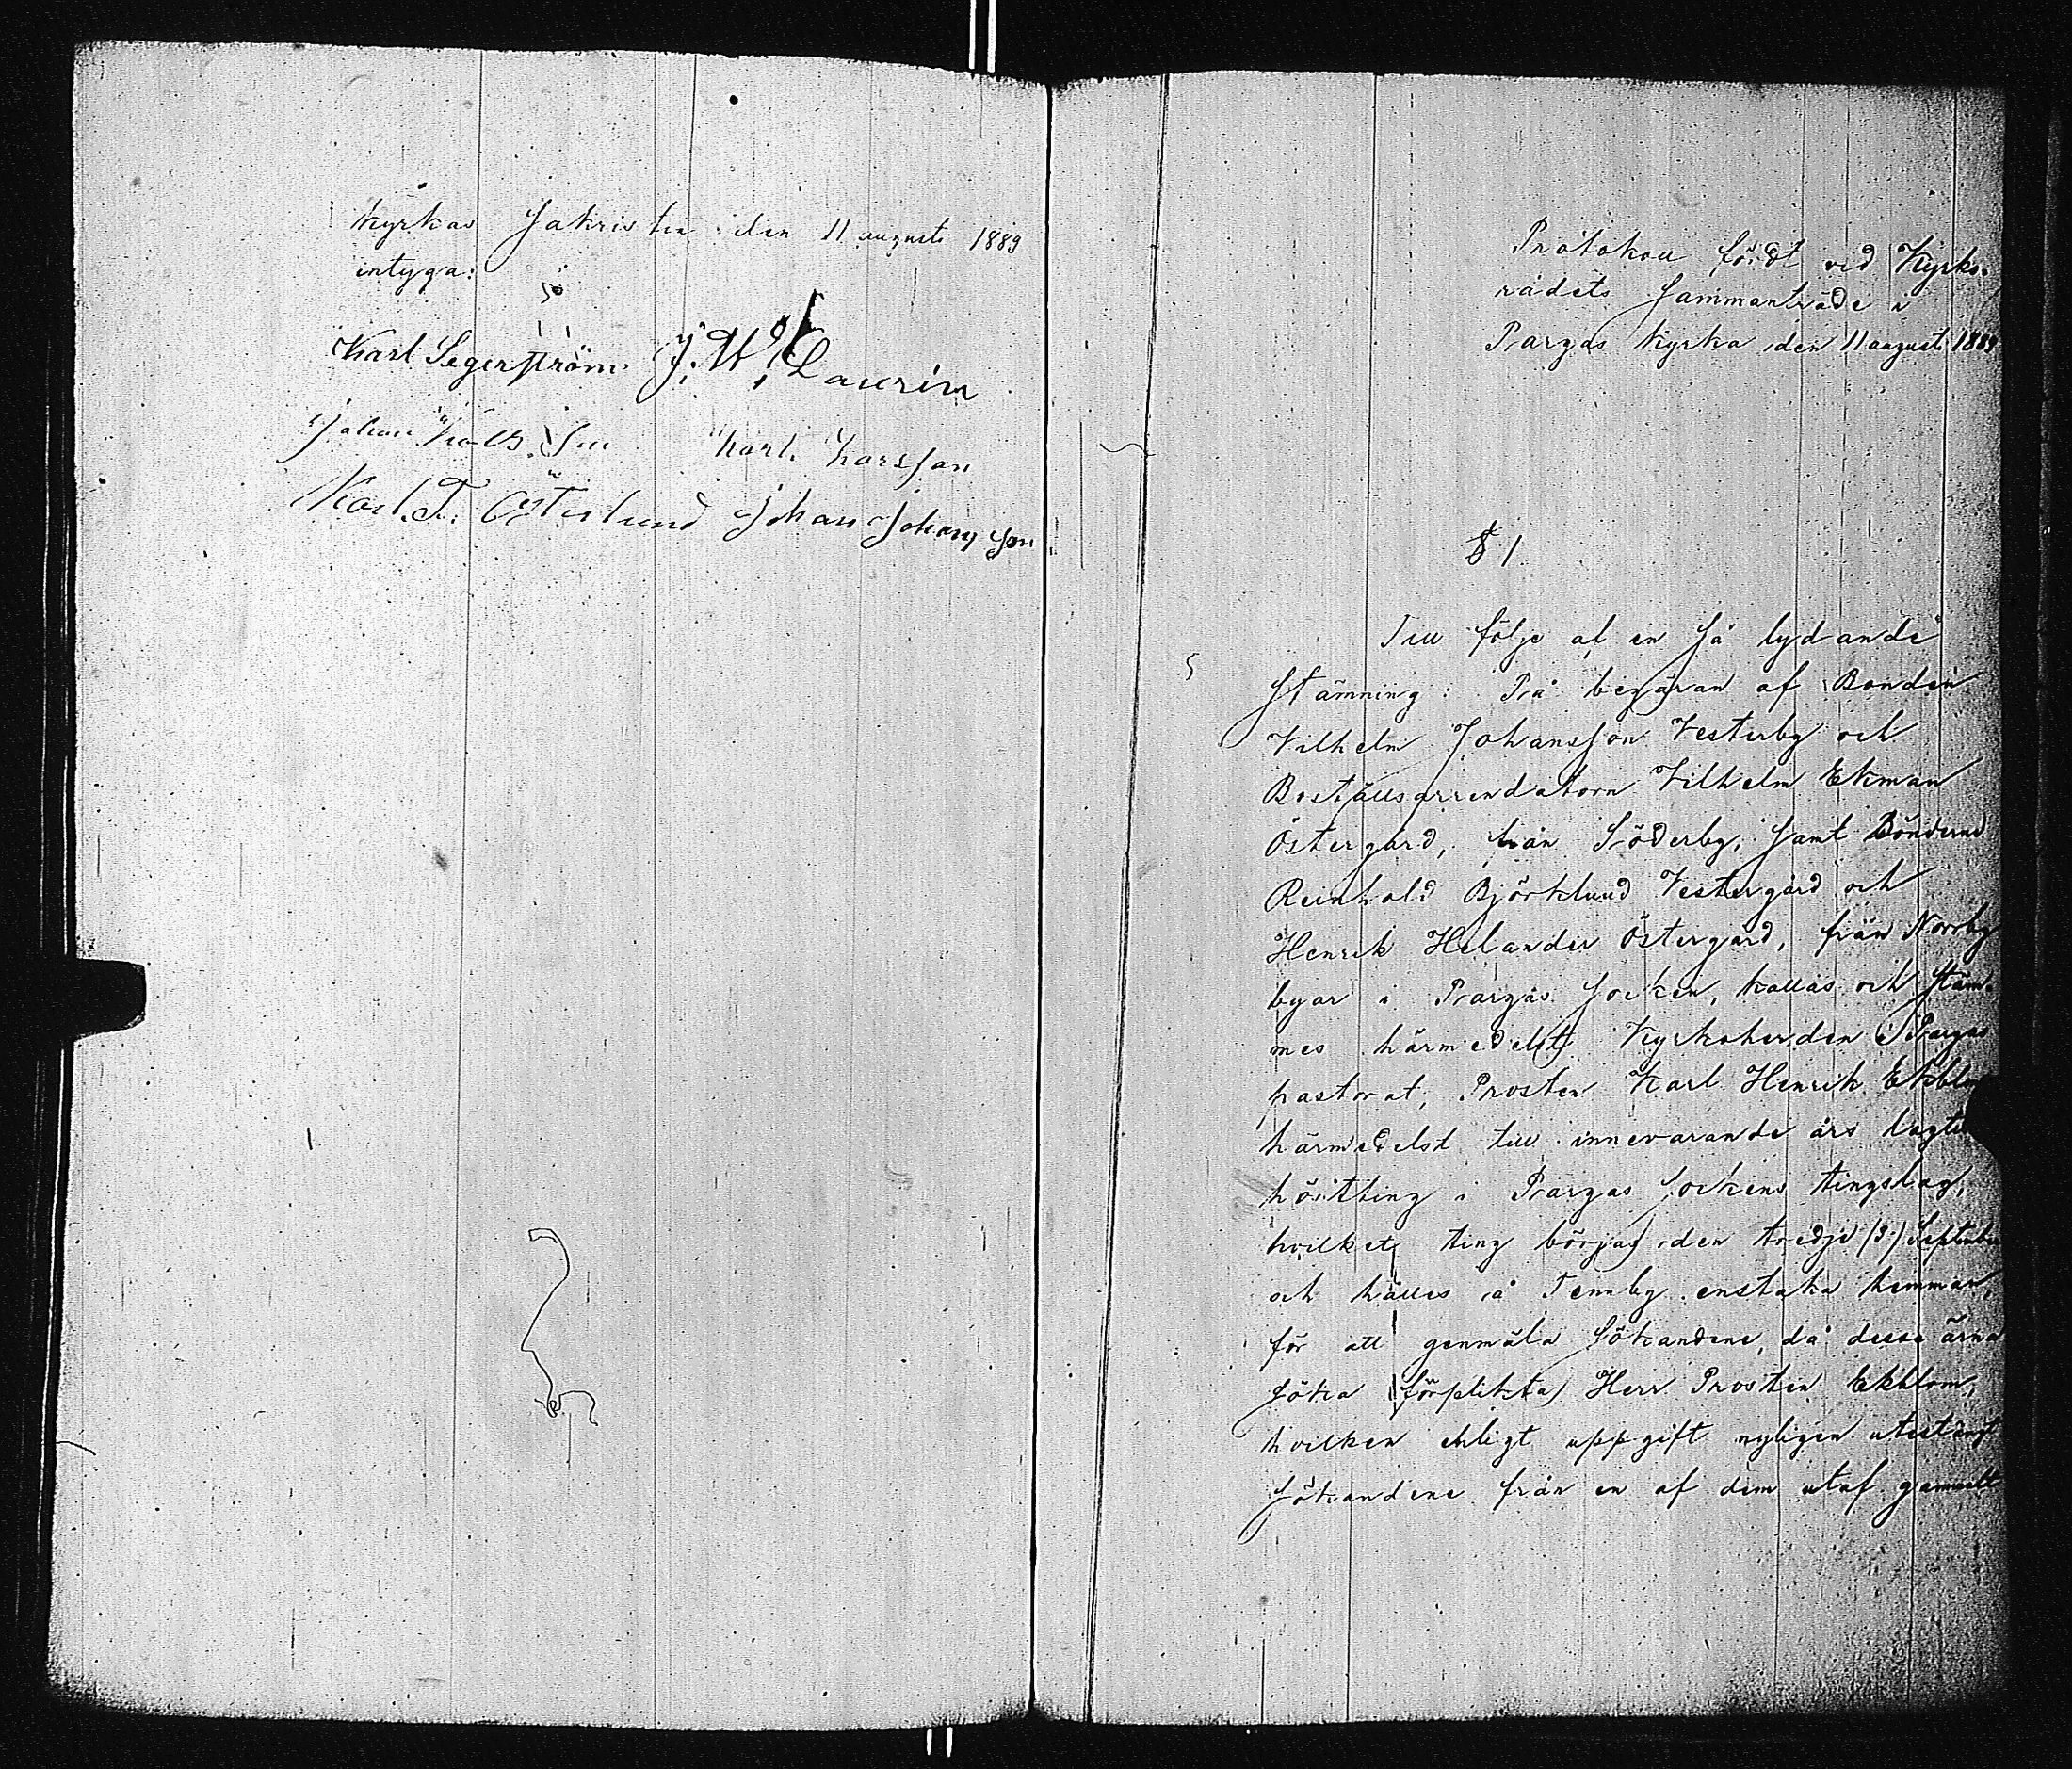 Kyrkas Sakristia den 11 augusti 1889
intyga:
Karl Segerström. J. W. Laurin
Johan Karl Karlsson
Karl. F. Österlund Johan Johansson
Protokoll fördt vid Kyrko-
rådets Sammanträde i
Pargas Kyrka den 11 august 1889
§ 1
Till följe af en så lydande
Stämning: På begäran af Bonden
Vilhelm Johansson Vesterby och
Boställsarrendatorn Vilhelm Ekman
Östergård, från Söderby, samt Bönderne
Reinhold Björklund Vestergård och
Henrik Helander Östergård, från Norrby
byar i Pargas Socken, kallas och stäm-
mes härmedelst Kyrkoherden i Pargas
pastorat, Prosten Karl Henrik Ekblom
härmedelst till innevarande års lagtima
höstting i Pargas Sockens tingslag,
hvilket ting börjas den tredje (3) September
och hålles å Tennby enstaka hemman,
för att genmäla Sökandene, då desse ärna
söka förplikta Herr Prosten Ekblom,
hvilken enligt uppgift nyligen utestängt
Sökandene från en af dem utaf gammalt